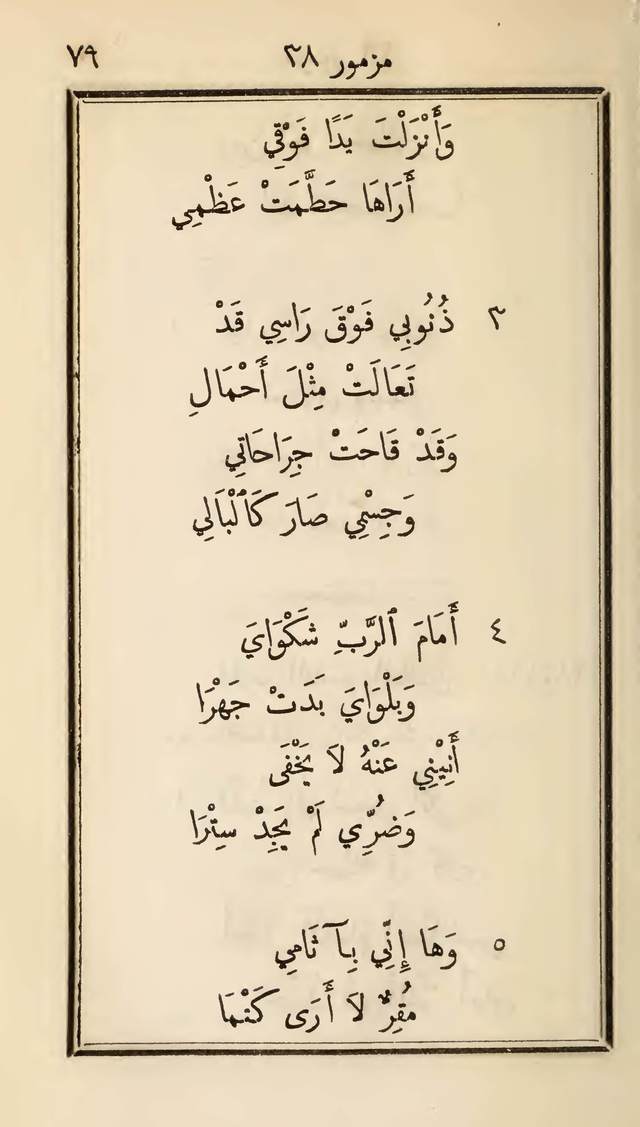 مزمور ٣٨ ٧٩
وَأَنْزَلْتَ يَدًا فَوْقِي
أَرَاهَا حَطَّمَتْ عَظْمِي
٣ ذُنُوبِي فَوْقَ رَاسِي قَدْ
تَعَالَتْ مِثْلَ أَحْمَالِ
وَقَدْ قَاحَتْ جِرَاحَاتِي
وَجِسْمِي صَارَ كَٱلْبَالِي
٤ أَمَامَ ٱلرَّبِّ شَكْوَايَ
وَبَلْوَايَ بَدَتْ جَهْرَا
أَنِيْنِي عَنْهُ لَا يَخْفَى
وَضُرِّي لَمْ يَجِدْ سِتْرَا
٥ وَهَا إِنِّي بِآثَامِي
مُقِرٌّ لَا أَرَى كَتْمَا